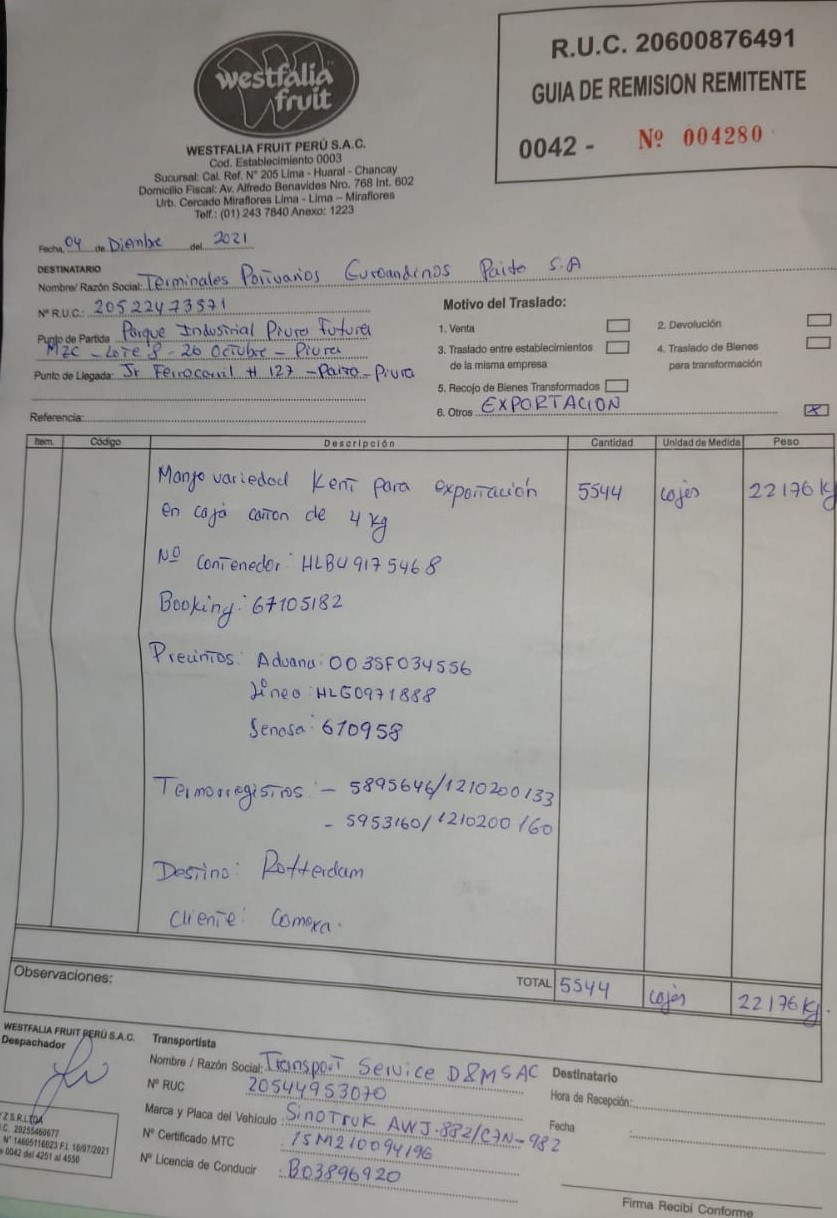 westfalia
fruit
WESTFALIA FRUIT PERÚ S.A.C.
Cod. Establecimiento 0003
Sucursal: Cal. Ref. N° 205 Lima - Huaral - Chancay
Domicilio Fiscal: Av. Alfredo Benavides Nro. 768 Int. 602
Urb. Cercado Miraflores Lima - Lima – Miraflores
Telf.: (01) 243 7840 Anexo: 1223
R.U.C. 20600876491
GUIA DE REMISION REMITENTE
0042 - Nº 004280
Fecha, 04 de Diembre del 2021
DESTINATARIO
Nombre/ Razón Social: Terminales Portuarios Euroandinos Paita S.A
N° R.U.C.: 20522473571
Punto de Partida Parque Industrial Piura Futura
MZC - Lote 8 - 26 Octubre - Piura
Punto de Llegada: Jr Ferrocarril # 127 - Paita - Piura
Referencia:
Motivo del Traslado:
1. Venta
2. Devolución
3. Traslado entre establecimientos
de la misma empresa
4. Traslado de Bienes
para transformación
5. Recojo de Bienes Transformados
6. Otros EXPORTACION X
Item. Código Descripción Cantidad Unidad de Medida Peso
Mango variedad Kent para exportación 5544 cajas 22176 kg
en caja carton de 4 kg
Nº Contenedor: HLBU 9175468
Booking: 67105182
Precintos: Aduana: 003SF034556
Línea: HLG0971888
Senasa: 670958
Termorregistros: - 5895646/1210200133
- 5953160/1210200160
Destino: Rotterdam
Cliente: Comexa.
Observaciones:
TOTAL 5544 cajas 22176 kg.
WESTFALIA FRUIT PERÚ S.A.C.
Despachador
Transportista
Nombre / Razón Social: Transport Service D&M SAC
N° RUC 20544953070
Marca y Placa del Vehículo: Sinotruk AWJ-882/C7N-982
N° Certificado MTC : 15M210094196
N° Licencia de Conducir : B03896920
Destinatario
Hora de Recepción:
Fecha :
Firma Recibí Conforme
Z S.R.LTDA
.C. 20255460677
N° 14605116023 F.I. 10/07/2021
0042 del 4251 al 4550